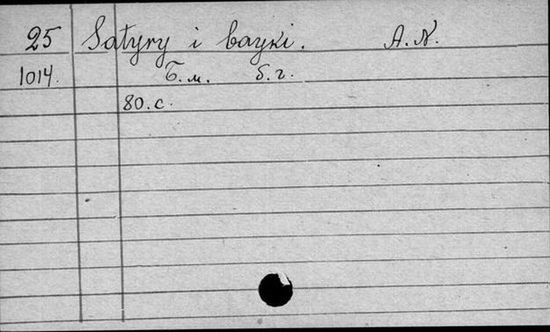 25 Satyry i bayki. A.N.
1014. Б.м. б.г.
80.с.